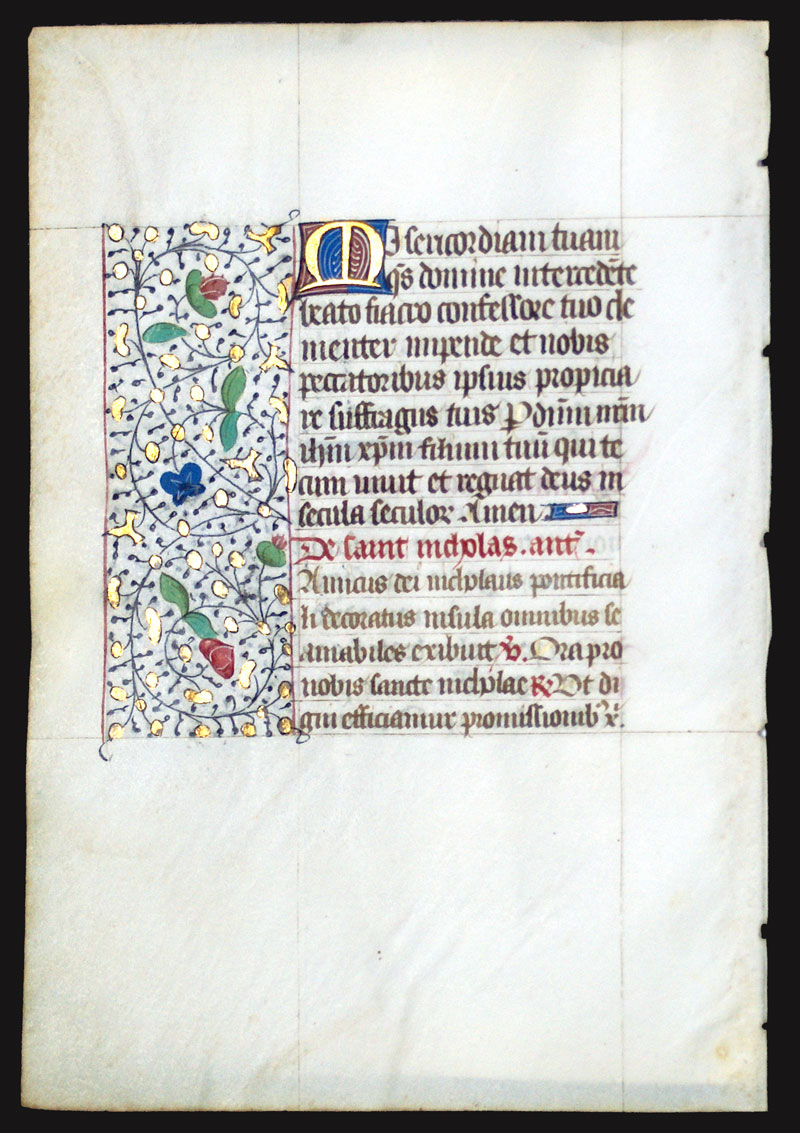 Misericordiam tuam
q̄s domine intercedēte
beato fiacro confessore tuo cle
menter impende et nobis
peccatoribus ipsius propicia
re suffragiis tuis Ꝑ dn̄m nr̄m
ihm̄ xp̄m filium tuū qui te
cum viuit et regnat deus in
secula seculoꝝ Amen
De saint nicholas. ant̄.
Amicus dei nicholaus pontificia
li decoratus insula omnibus se
amabilem exibuit ℣. Ora pro
nobis sancte nicholae ℟ Vt di
gni efficiamur promissionib⁹ x̄.